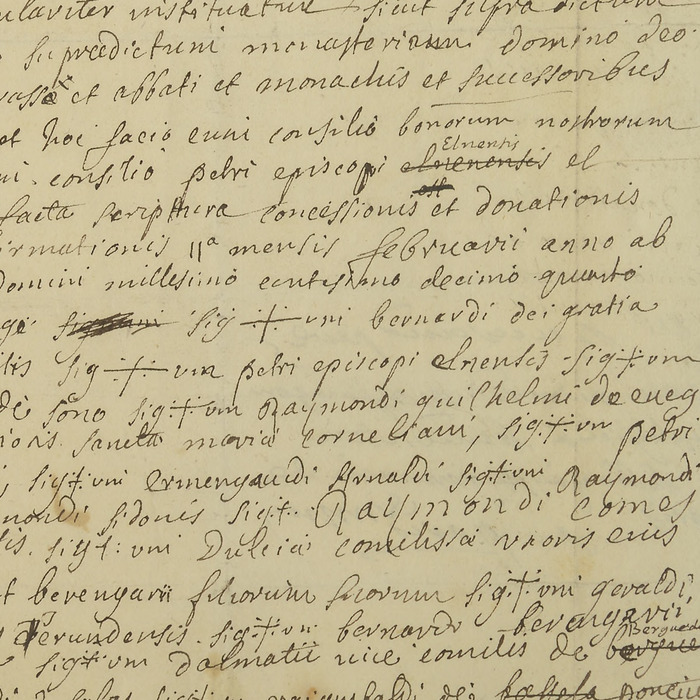 ulariter instituatur sicut supra dictum
supradictum monasterium domino deo
et abbati et monachis et successoribus
et hoc facio cum consilio bonorum nostrorum
consilio petri episcopi elnenensis Elnensis el
facta scriptura concessionis et donationis
irmationis 11ª mensis februarii anno ab
domini millesimo centesimo decimo quarto
sig + uni bernardi dei gratia
sig + um petri episcopi elnensis sig + um
sono sig + um Raymondi guilhelmi de eveg
sancta maria corneliani, sig + un petri
sig + uni Ermengaudi Arnaldi sig + uni Raymondi
mondi sidonis sig + Raymondi comes
sig + uni Dulcia comitissa uxoris eius
et berengarii filiorum suorum sig + uni geraldi
Gerundensis sig + un bernardi berengarii,
sig + um dalmatii vice comitis de Bergued